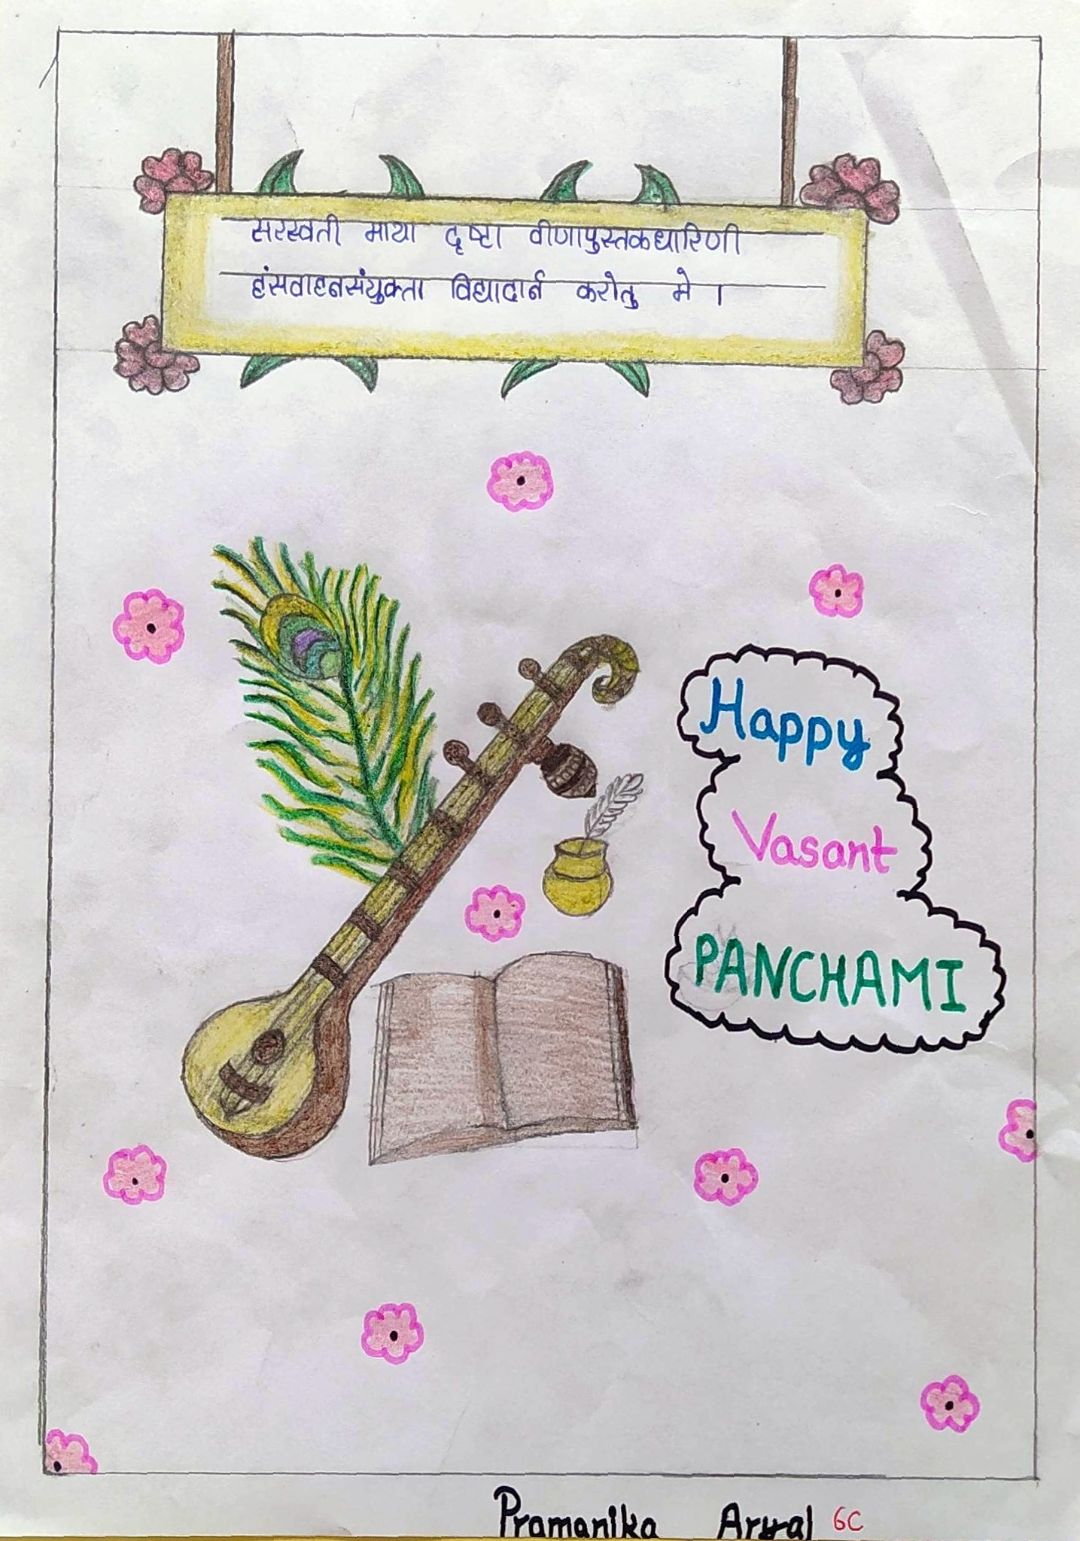 सरस्वती माया दृष्टा वीणापुस्तकधारिणी
हंसवाहनसंयुक्ता विद्यादानं करोतु मे ।
Happy
Vasant
PANCHAMI
Pramanika Aryal 6C